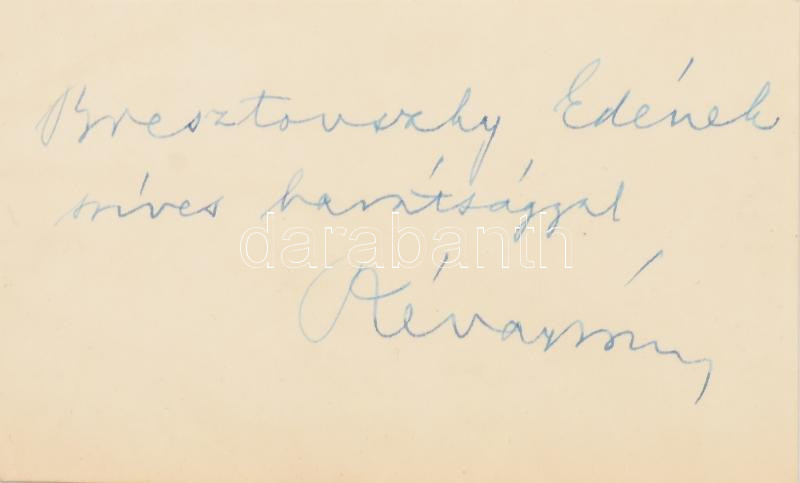 Bresztovszky Edének
szíves barátsággal
darabanth